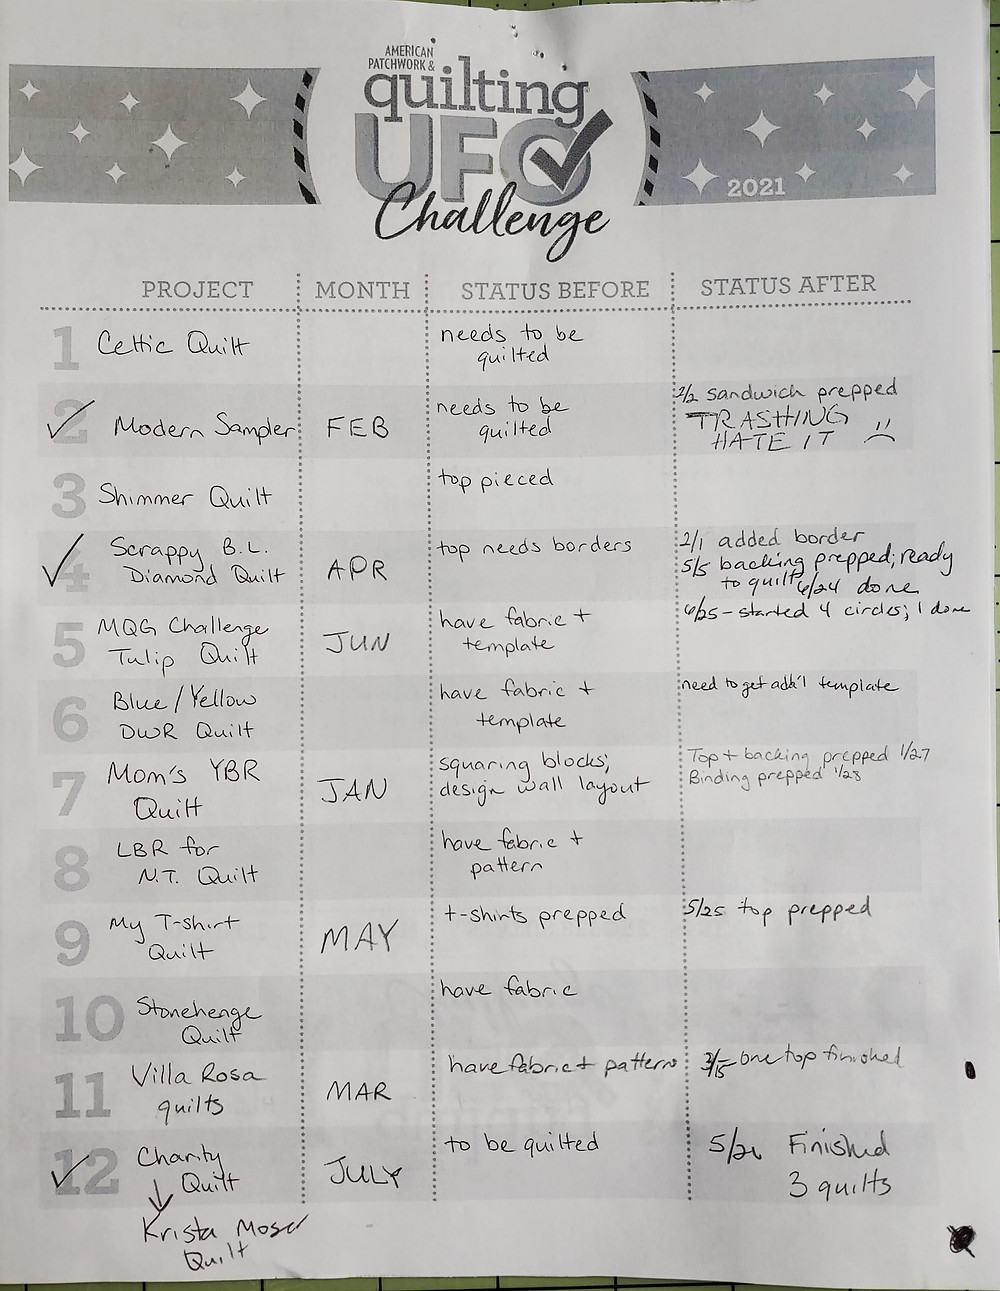 AMERICAN
PATCHWORK &
quilting
UFO
Challenge
2021
PROJECT MONTH STATUS BEFORE STATUS AFTER
1 Celtic Quilt needs to be
quilted
2 Modern Sampler FEB needs to be
quilted
2/2 sandwich prepped
TRASHING
HATE IT
3 Shimmer Quilt top pieced
4 Scrappy B.L.
Diamond Quilt APR top needs borders
2/1 added border
5/5 backing prepped; ready
to quilt 6/24 done
5 MQG Challenge
Tulip Quilt JUN have fabric +
template
6/25 - started 4 circles; 1 done
6 Blue/Yellow
DWR Quilt have fabric +
template
need to get add'l template
7 Mom's YBR
Quilt JAN squaring blocks;
design wall layout
Top + backing prepped 1/27
Binding prepped 1/28
8 LBR for
N.T. Quilt have fabric +
pattern
9 My T-shirt
Quilt MAY t-shirts prepped
5/25 top prepped
10 Stonehenge
Quilt have fabric
11 Villa Rosa
quilts MAR have fabric + patterns
3/15 - one top finished
12 Charity
Quilt JULY to be quilted
Finished
3 quilts
Krista Moser
Quilt